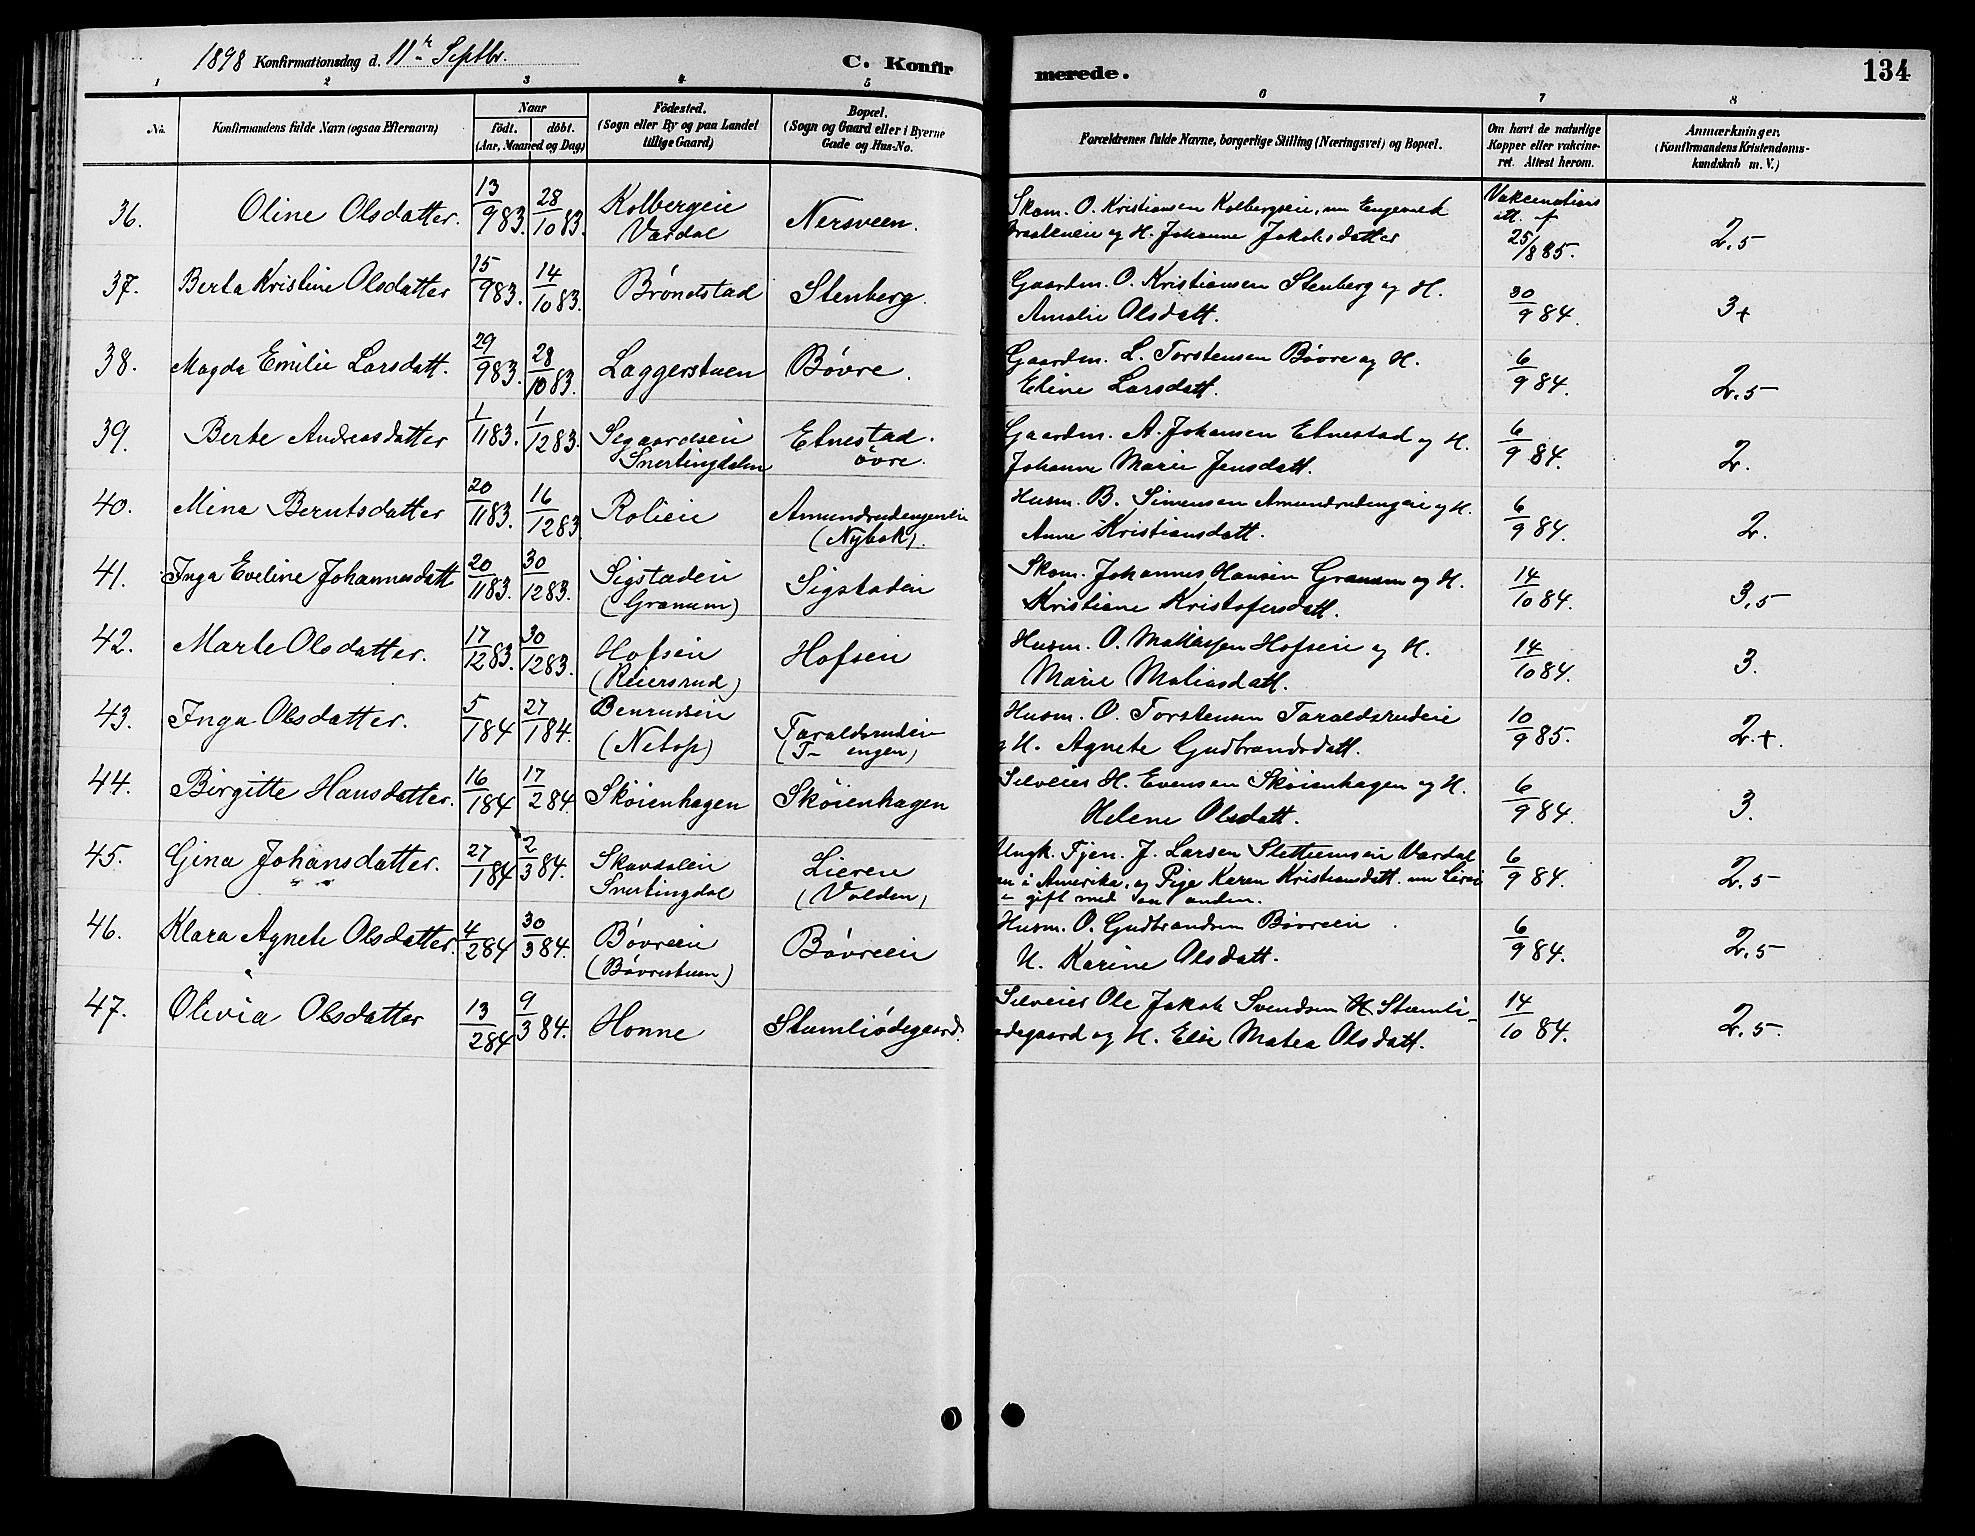 1898 Konfirmationsdag d. 11te Septbr.
C. Konfirmerede.
134
1 2 3 4 5 6 7 8
No.
Konfirmandens fulde Navn (ogsaa Efternavn)
Naar
født. døbt.
(Aar, Maaned og Dag)
Fødested.
(Sogn eller By og paa Landet
tillige Gaard)
Bopæl.
(Sogn og Gaard eller i Byerne
Gade og Hus-No.
Forældrenes fulde Navne, borgerlige Stilling (Næringsvei) og Bopæl.
Om havt de naturlige
Kopper eller vakcine-
ret. Attest herom.
Anmærkninger.
(Konfirmandens Kristendoms-
kundskab m. V.)
36. Oline Olsdatter. 13/9 83. 28/10 83. Kolbergeie Vardal Nersveen.
Skom. O. Kristiansen Kolbergseie, nu Engemek
Braateneie og H. Johanne Jakobsdatter
Vakcinations
att. af
25/8 85. 2,5
37. Berta Kristine Olsdatter 15/9 83. 14/10 83. Brøndstad Stenberg.
Gaardm. O. Kristiansen Stenberg og H.
Amalie Olsdatt. 30/9 84. 3+
38. Magda Emilie Larsdatt. 29/9 83. 28/10 83. Laggerstuen Bøvre.
Gaardm. L. Torstensen Bøvre og H.
Eline Larsdatt. 6/9 84. 2,5
39. Berte Andreasdatter 1/11 83. 1/12 83. Segaardseie Snertingdalen Etnestad øvre.
Gaardm. A. Johansen Etnestad og H.
Johanne Marie Jensdatt. 6/9 84. 2.
40. Mina Berntsdatter 20/11 83. 16/12 83 Rolieie Amundrudengenie (Nybak).
Husm. B. Simensen Amundrudengeie og H.
Anne Kristiansdatt. 6/9 84. 2.
41. Inga Eveline Johannesdatt 20/11 83. 30/12 83. Sigstadeie (Granum) Sigstadeie
Skom. Johannes Hansen Granum og H.
Kristiane Kristofersdatt. 14/10 84. 3,5
42. Marte Olsdatter. 17/12 83. 30/12 83. Hofseie (Reiersrud) Hofseie
Husm. O. Matiasen Hofseie og H.
Marie Matiasdatt. 14/10 84. 3.
43. Inga Olsdatter. 5/1 84 27/1 84. Benrudseie (Netop) Taraldsrudeie (T- engen)
Husm. O. Torstensen Taraldsrudeie
og H. Agnete Gudbrandsdatt. 10/9 85. 2+.
44. Birgitte Hansdatter. 16/1 84 17/2 84. Skøienhagen Skøienhagen
Selveier H. Evensen Skøienhagen og H.
Helene Olsdatt. 6/9 84. 3.
45. Gina Johansdatter. 27/1 84 2/3 84. Skavdaleie Snertingdal Lieren (Volden)
Ungk. Tjen. J. Larsen Vardal
nu i Amerika, og Pige Karen Kristiansdatt. nu
gift med en anden. 6/9 84. 2,5
46. Klara Agnete Olsdatter. 4/2 84 30/3 84. Bøvreeie (Bøvrestuen) Bøvreeie
Husm. O. Gudbrandsen Bøvreeie
H. Karine Olsdatt. 6/9 84. 2,5
47. Olivia Olsdatter 13/2 84 9/3 84. Honne Stumliødegaard.
Selveier Ole Jakob Svendsen Stumli-
ødegaard og H. Elise Matea Olsdatt. 14/10 84. 2,5.